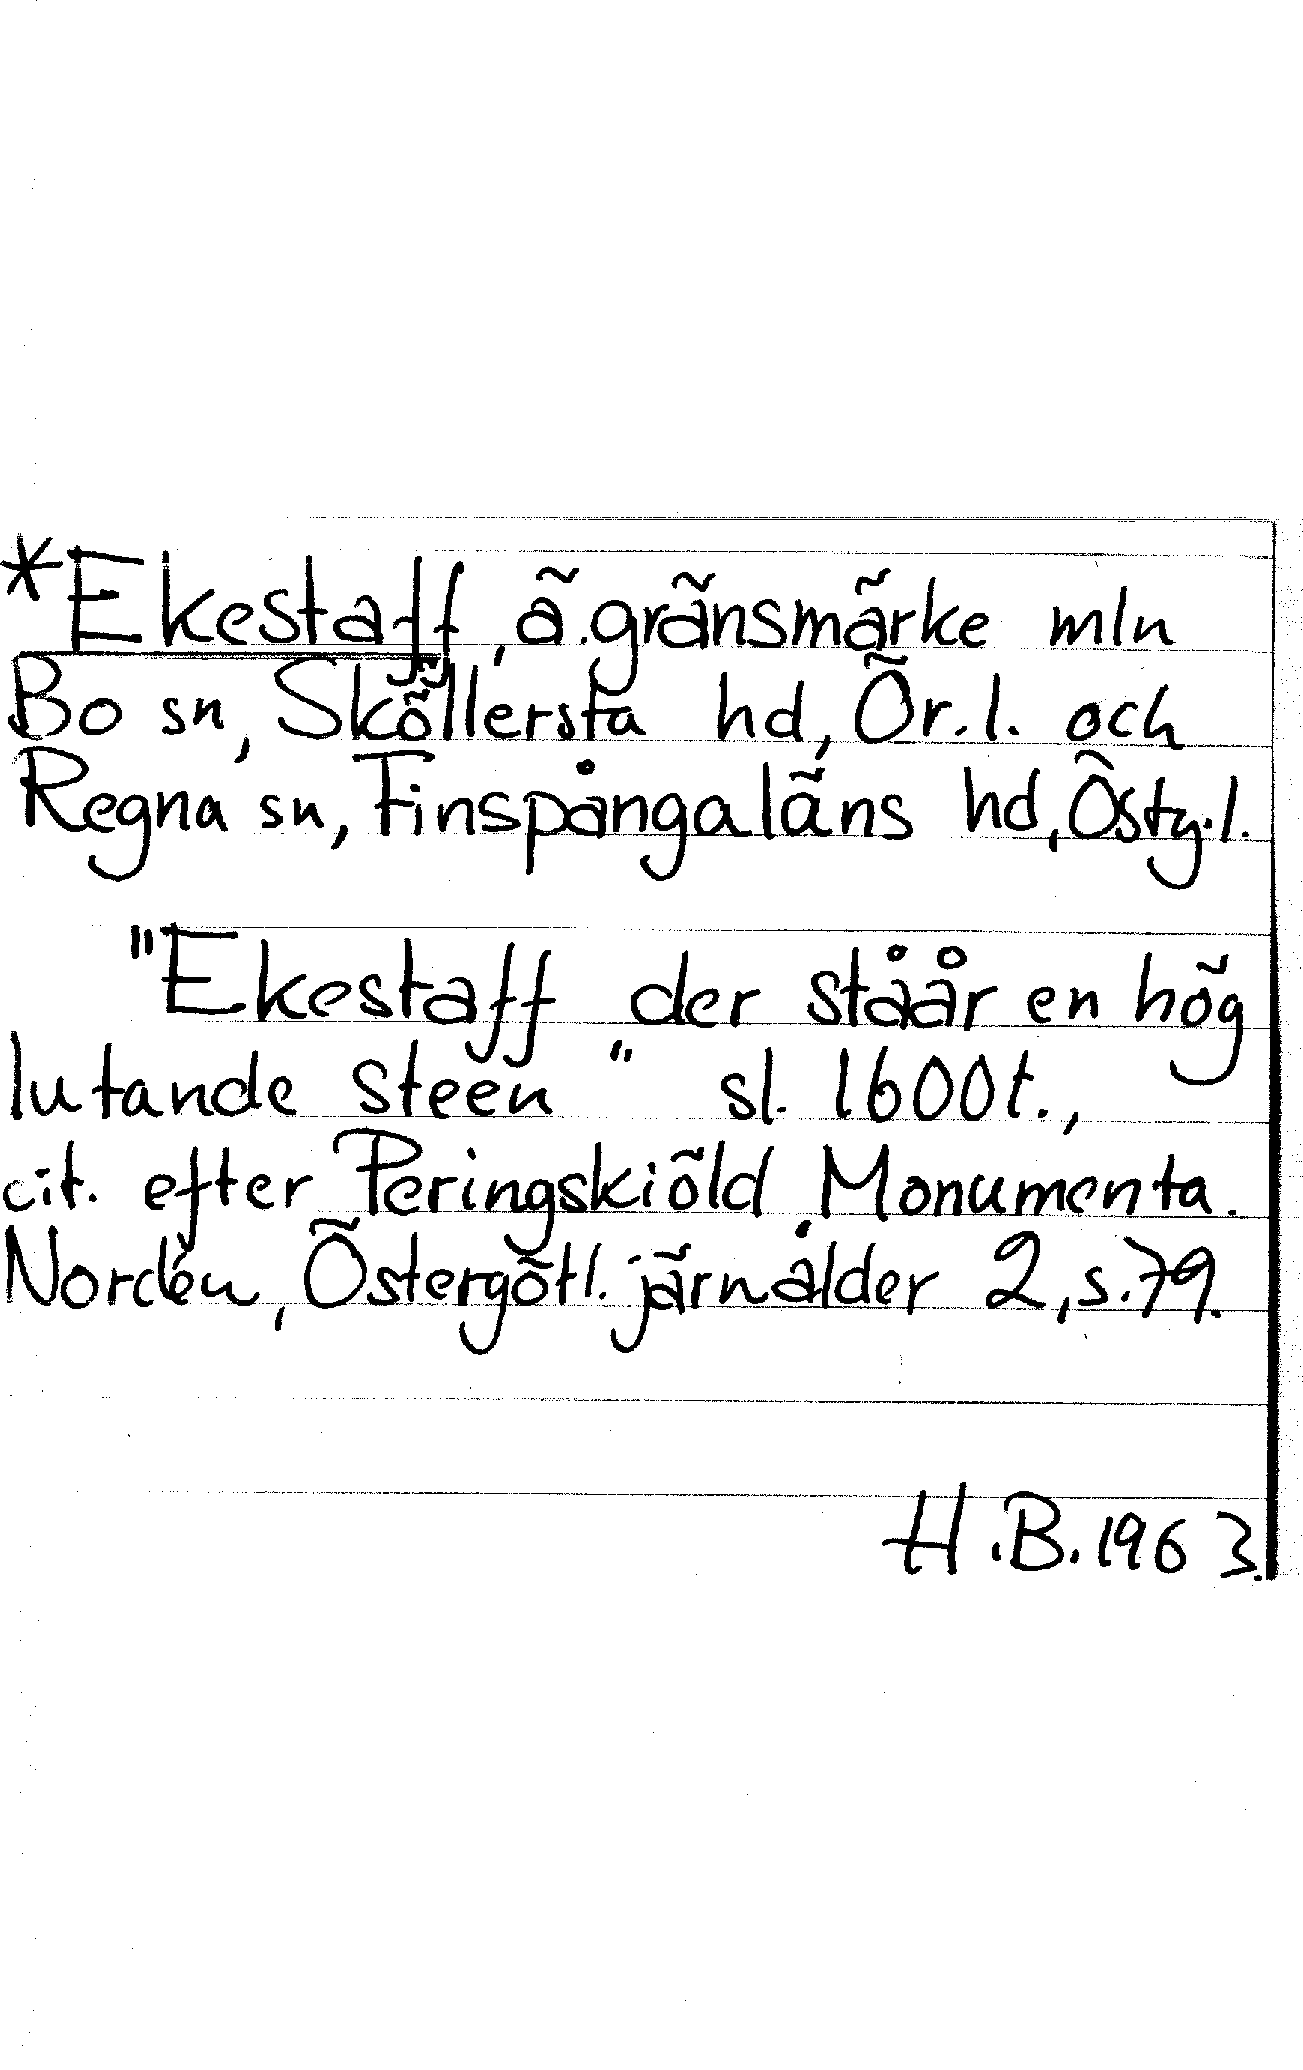 *Ekestaff, ä. gränsmärke mln
Bo sn, Sköllersta hd, Ör. l. och
Regna sn, Finspångaläns hd, Östg. l.
"Ekestaff der ståår en hög
lutande steen" sl. 1600t.,
cit. efter Peringskiöld, Monumenta.
Nordén, Östergötl. järnålder 2, s. 79.
H.B. 1963.